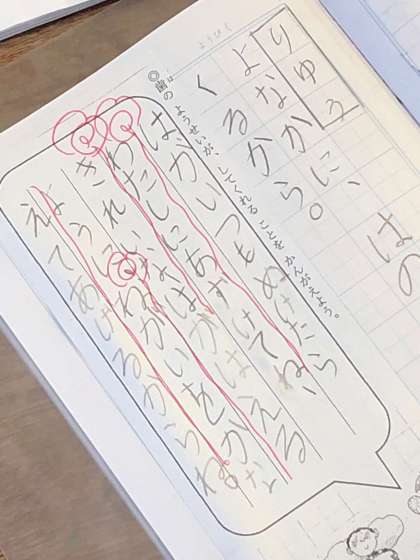 はの
りゆう
よなかに、
くるから。
◎歯のようせいが、してくれる ことを かんがえよう。
は
はがいつもぬけたら
わたしにあずけてね、
きれいなはがはえる
ようにねがいをかな
えてあげるからね。